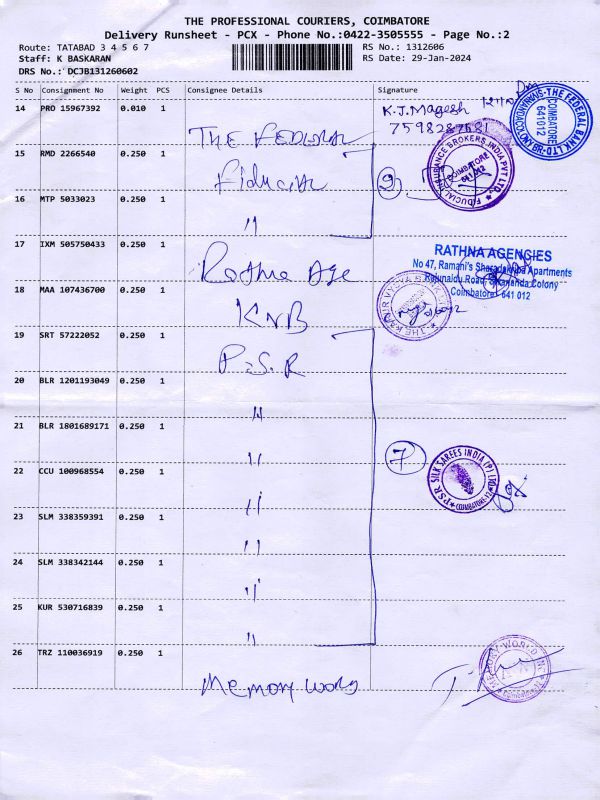 THE PROFESSIONAL COURIERS, COIMBATORE
Delivery Runsheet - PCX - Phone No.:0422-3505555 - Page No.:2
Route: TATABAD 3 4 5 6 7
RS No.: 1312606
Staff: K BASKARAN
RS Date: 29-Jan-2024
DRS No.: DCJB131260602
S No Consignment No Weight PCS Consignee Details Signature
14 PRO 15967392 0.010 1 THE FEDERAL K.J. Magesh
7598287681
THE FEDERAL BANK LTD
COIMBATORE
641012
15 RMD 2266540 0.250 1 Fiducial 2
FIDUCIAL INSURANCE BROKERS INDIA PVT LTD.
COIMBATORE
641 012
16 MTP 5033023 0.250 1 "
17 IXM 505750433 0.250 1 Rathna Age
RATHNA AGENCIES
No 47, Ramani's Sharadakripa Apartments
Rajunaidu Road, Sivananda Colony
Coimbatore 641 012
18 MAA 107436700 0.250 1 KNB
19 SRT 57222052 0.250 1 P.S.R
20 BLR 1201193049 0.250 1 "
21 BLR 1801689171 0.250 1 "
22 CCU 100968554 0.250 1 " 7
PSR SILK SAREES INDIA (P) LTD
COIMBATORE
23 SLM 338359391 0.250 1 "
24 SLM 338342144 0.250 1 "
25 KUR 530716839 0.250 1 "
26 TRZ 110036919 0.250 1 Memory world
MEMORY WORLD